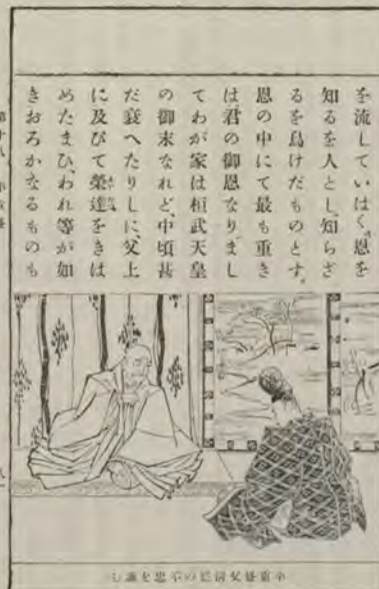 を流していはく、「恩を
知るを人とし、知らざ
るを鳥けだものとす。
恩の中にて最も重き
は、君の御恩なり。まし
てわが家は桓武天皇
の御末なれど、中頃甚
だ衰へたりしに、父上
に及びて榮達をきは
めたまひ、われ等が如
きおろかなるものも
平重盛父清盛の不忠を諫む
第十八 平重盛